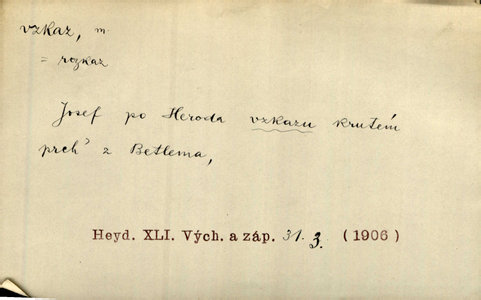 vzkaz, m.
= rozkaz
Josef po Heroda vzkazu krutém
prch' z Betlema,
Heyd. XLI. Vých. a záp. 31. 3. (1906)